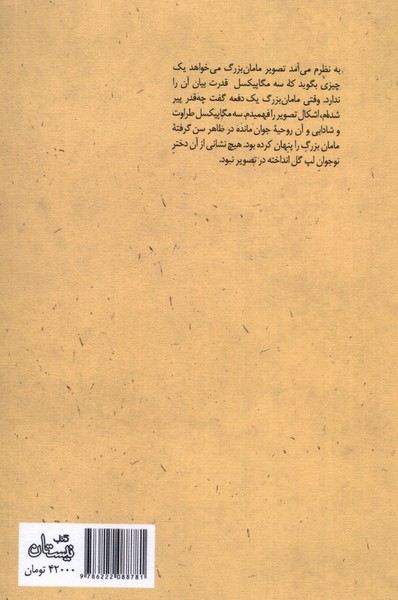 به نظرم می‌آمد تصویر مامان‌بزرگ می‌خواهد یک
چیزی بگوید که سه مگاپیکسل قدرت بیان آن را
ندارد. وقتی مامان‌بزرگ یک دفعه گفت چه‌قدر پیر
شده‌ام، اشکال تصویر را فهمیدم. سه مگاپیکسل طراوت
و شادابی و آن روحیهٔ جوان مانده در ظاهر سن گرفتهٔ
مامان بزرگ را پنهان کرده بود. هیچ نشانی از آن دختر
نوجوان لپ گل انداخته در تصویر نبود.
کتاب
نیستان
۴۲۰۰۰ تومان
9 786222 088781